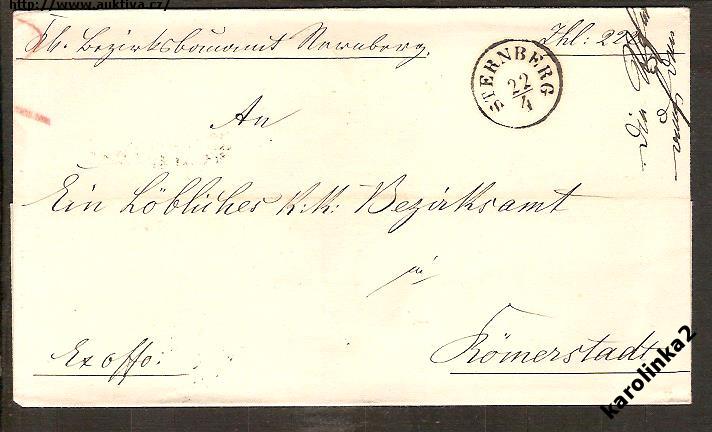 http://www.auktiva.cz/
Bezirksbauamt Sternberg.
Zhl: 22
STERNBERG
22
4
An
Ein Löbliches K: K: Bezirksamt
in
Römerstadt.
Ex offo:
karolinka2